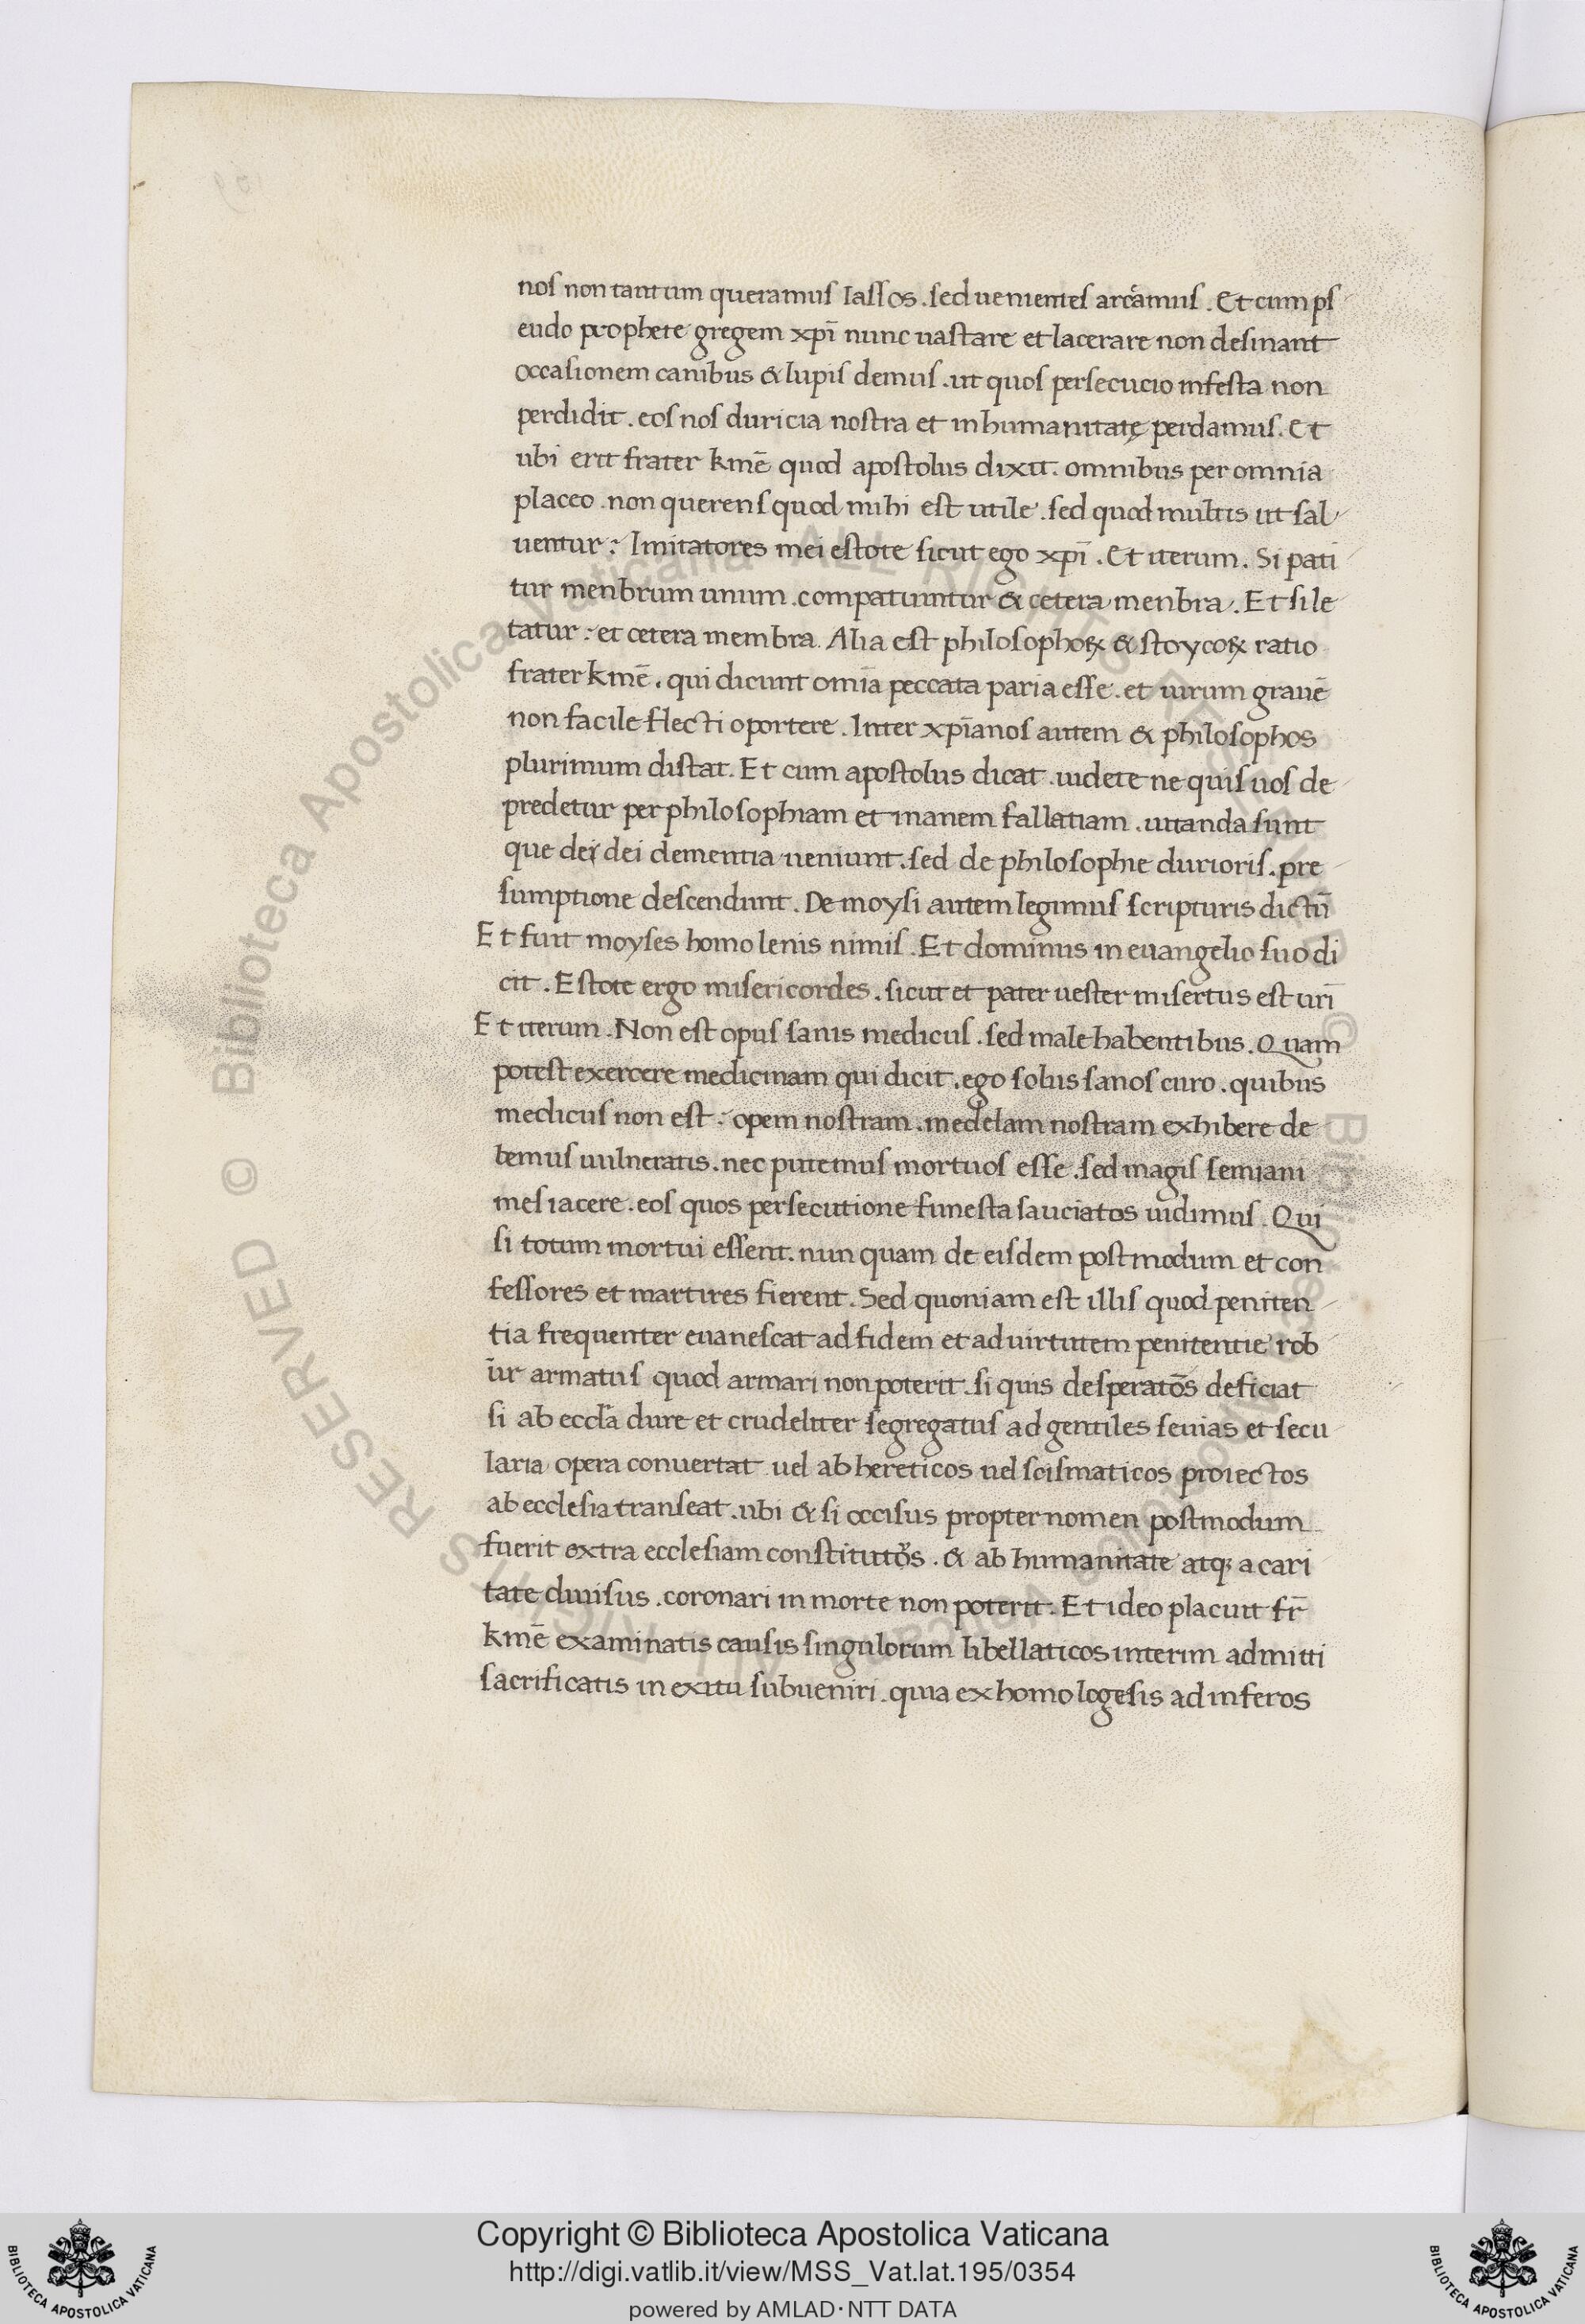 nos non tantum queramus lassos . sed uenientes arceamus . Et cum ps
eudo prophete gregem xp̄i nunc uastare et lacerare non desinant
occasionem canibus & lupis demus . ut quos persecucio infesta non
perdidit . eos nos duricia nostra et inhumanitatę perdamus . Et
ubi erit frater kmē quod apostolus dixit . omnibus per omnia
placeo . non querens quod mihi est utile . sed quod multis ut sal
uentur : Imitatores mei estote sicut ego xp̄i . Et iterum . Si pati
tur menbrum unum . compatiuntur & cetera menbra . Et si le
tatur : et cetera membra . Alia est philosophoꝝ & stoycoꝝ ratio
frater kmē . qui dicunt omīa peccata paria esse . et uirum grauē
non facile flecti oportere . Inter xp̄ianos autem & philosophos
plurimum distat . Et cum apostolus dicat . uidete ne quis uos de
predetur per philosophiam et inanem fallatiam . uitanda sunt
que dei dei dementia ueniunt . sed de philosophie durioris . pre
sumptione descendunt . De moysi autem legimus scripturis dictū
Et fuit moyses homo lenis nimis . Et dominus in euangelio suo di
cit . Estote ergo misericordes . sicut et pater uester misertus est uri̅
Et iterum . Non est opus sanis medicus . sed male habentibus . Quam
potest exercere medicinam qui dicit . ego solus sanos curo . quibus
medicus non est : opem nostram . medelam nostram exhibere de
bemus uulneratis . nec putemus mortuos esse . sed magis semiani
mes iacere . eos quos persecutione funesta sauciatos uidimus . Qui
si totum mortui essent . nun quam de eisdem postmodum et con
fessores et martires fierent . Sed quoniam est illis quod peniten
tia frequenter euanescat ad fidem et ad uirtutem penitentie rob
ūr armatus quod armari non poterit . si quis desperatōs deficiat
si ab eccl̄a dure et crudeliter segregatus ad gentiles seuias et secu
laria opera conuertat uel ab hereticos uel scismaticos proiectos
ab ecclesia transeat . ubi & si occisus propter nomen postmodum
fuerit extra ecclesiam constitutos . & ab humanitate atq; a cari
tate diuisus . coronari in morte non poterit . Et ideo placuit fr̄
kmē examinatis causis singulorum libellaticos interim admitti
sacrificatis in exitu subueniri . quia exhomologesis ad inferos
Copyright © Biblioteca Apostolica Vaticana
http://digi.vatlib.it/view/MSS_Vat.lat.195/0354
powered by AMLAD·NTT DATA